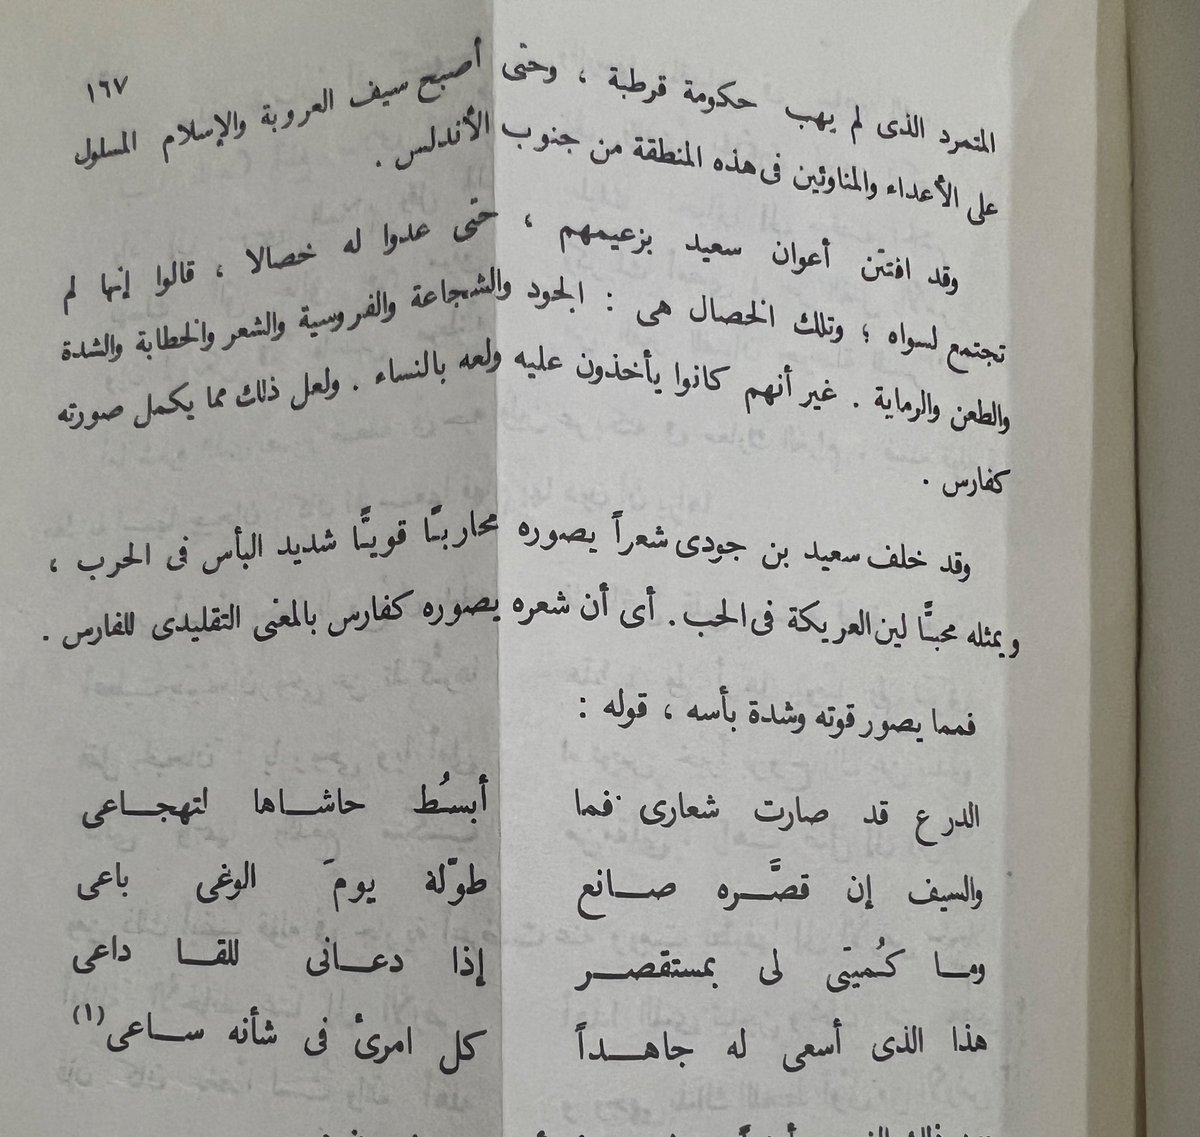 ١٦٧
المتمرد الذى لم يهب حكومة قرطبة ، وحتى أصبح سيف العروبة والإسلام المسلول
على الأعداء والمناوئين فى هذه المنطقة من جنوب الأندلس .
وقد افتتن أعوان سعيد بزعيمهم ، حتى عدوا له خصالا ، قالوا إنها لم
تجتمع لسواه ؛ وتلك الخصال هى : الجود والشجاعة والفروسية والشعر والخطابة والشدة
والطعن والرماية . غير أنهم كانوا يأخذون عليه ولعه بالنساء . ولعل ذلك مما يكمل صورته
كفارس .
وقد خلف سعيد بن جودى شعراً يصوره محاربًا قويًّا شديد البأس فى الحرب ،
ويمثله محبًّا لين العريكة فى الحب . أى أن شعره يصوره كفارس بالمعنى التقليدى للفارس .
فمما يصور قوته وشدة بأسه ، قوله :
الدرع قد صارت شعارى فما أبسُط حاشاها لتهجاعى
والسيف إن قصَّره صانع طوّله يومَ الوغى باعى
وما كُميتى لى بمستقصر إذا دعانى للقا داعى
هذا الذى أسعى له جاهداً كل امرئ فى شأنه ساعى(١)